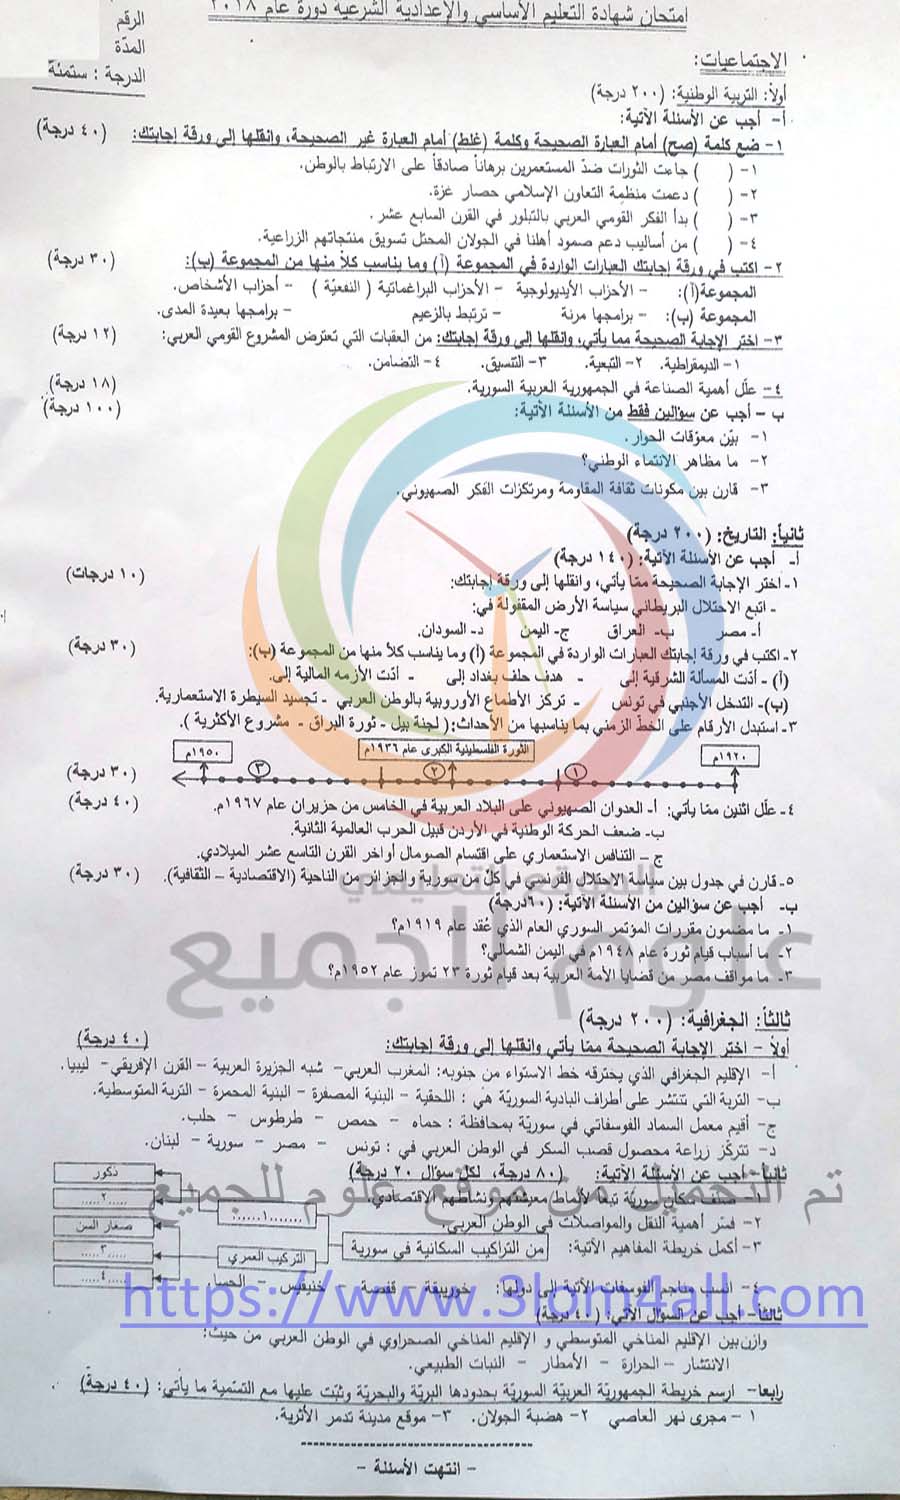 امتحان شهادة التعليم الأساسي والإعدادية الشرعية دورة عام ٢٠١٨
الرقم
المدّة
الدرجة : ستمئة
الاجتماعيات:
أولاً: التربية الوطنية: (٢٠٠ درجة)
أ- أجب عن الأسئلة الآتية:
١- ضع كلمة (صح) أمام العبارة الصحيحة وكلمة (غلط) أمام العبارة غير الصحيحة، وانقلها إلى ورقة إجابتك: (٤٠ درجة)
١- ( ) جاءت الثورات ضدّ المستعمرين برهاناً صادقاً على الارتباط بالوطن.
٢- ( ) دعمت منظمة التعاون الإسلامي حصار غزة.
٣- ( ) بدأ الفكر القومي العربي بالتبلور في القرن السابع عشر .
٤- ( ) من أساليب دعم صمود أهلنا في الجولان المحتل تسويق منتجاتهم الزراعية.
٢- اكتب في ورقة إجابتك العبارات الواردة في المجموعة (أ) وما يناسب كلاً منها من المجموعة (ب): (٣٠ درجة)
المجموعة(أ): - الأحزاب الأيديولوجية - الأحزاب البراغماتية ( النفعيّة ) - أحزاب الأشخاص.
المجموعة (ب): - برامجها مرنة - ترتبط بالزعيم - برامجها بعيدة المدى.
٣- اختر الإجابة الصحيحة مما يأتي، وانقلها إلى ورقة إجابتك: من العقبات التي تعترض المشروع القومي العربي: (١٢ درجة)
١- الديمقراطية. ٢- التبعية. ٣- التنسيق. ٤- التضامن.
٤- علّل أهمية الصناعة في الجمهورية العربية السورية. (١٨ درجة)
ب - أجب عن سؤالين فقط من الأسئلة الآتية: (١٠٠ درجة)
١- بيّن معوّقات الحوار .
٢- ما مظاهر الانتماء الوطني؟
٣- قارن بين مكونات ثقافة المقاومة ومرتكزات الفكر الصهيوني.
ثانياً: التاريخ: (٢٠٠ درجة)
أ- أجب عن الأسئلة الآتية: (١٤٠ درجة)
١- اختر الإجابة الصحيحة ممّا يأتي، وانقلها إلى ورقة إجابتك: (١٠ درجات)
- اتبع الاحتلال البريطاني سياسة الأرض المقفولة في:
أ- مصر ب- العراق ج- اليمن د- السودان.
٢- اكتب في ورقة إجابتك العبارات الواردة في المجموعة (أ) وما يناسب كلاً منها من المجموعة (ب): (٣٠ درجة)
(أ) - أدّت المسألة الشرقية إلى - هدف حلف بغداد إلى - أدّت الأزمه المالية إلى.
(ب)- التدخل الأجنبي في تونس - تركز الأطماع الأوروبية بالوطن العربي - تجسيد السيطرة الاستعمارية.
٣- استبدل الأرقام على الخطّ الزمني بما يناسبها من الأحداث:( لجنة بيل - ثورة البراق - مشروع الأكثرية ).
١٩٢٠م الثورة الفلسطينية الكبرى عام ١٩٣٦م ١٩٥٠م
١ ٢ ٣ (٣٠ درجة)
٤- علّل اثنين ممّا يأتي: أ- العدوان الصهيوني على البلاد العربية في الخامس من حزيران عام ١٩٦٧م. (٤٠ درجة)
ب- ضعف الحركة الوطنية في الأردن قبيل الحرب العالمية الثانية.
ج - التنافس الاستعماري على اقتسام الصومال أواخر القرن التاسع عشر الميلادي.
٥- قارن في جدول بين سياسة الاحتلال الفرنسي في كلّ من سورية والجزائر من الناحية (الاقتصادية - الثقافية). (٣٠ درجة)
ب- أجب عن سؤالين من الأسئلة الآتية: (٦٠درجة)
١- ما مضمون مقررات المؤتمر السوري العام الذي عُقد عام ١٩١٩م؟
٢- ما أسباب قيام ثورة عام ١٩٤٨م في اليمن الشمالي؟
٣- ما مواقف مصر من قضايا الأمة العربية بعد قيام ثورة ٢٣ تموز عام ١٩٥٢م؟
الموقع التعليمي
علوم للجميع
ثالثاً: الجغرافية: (٢٠٠ درجة)
أولاً - اختر الإجابة الصحيحة ممّا يأتي وانقلها إلى ورقة إجابتك: (٤٠ درجة)
أ- الإقليم الجغرافي الذي يخترقه خط الاستواء من جنوبه: المغرب العربي- شبه الجزيرة العربية - القرن الإفريقي- ليبيا.
ب- التربة التي تنتشر على أطراف البادية السوريّة هي : اللحقية - البنية المصفرة - البنية المحمرة - التربة المتوسطية.
ج- أقيم معمل السماد الفوسفاتي في سوريّة بمحافظة : حماه - حمص - طرطوس - حلب.
د- تتركّز زراعة محصول قصب السكر في الوطن العربي في : تونس - مصر - سورية - لبنان.
ثانياً- أجب عن الأسئلة الآتية: (٨٠ درجة، لكل سؤال ٢٠ درجة)
تم التحميل من موقع علوم للجميع
صنف سكان سوريّة تبعاً لأنماط معيشتهم ونشاطهم الاقتصادي.
٢- فسّر أهمية النقل والمواصلات في الوطن العربي.
٣- أكمل خريطة المفاهيم الآتية:
من التراكيب السكانية في سورية
١........
التركيب العمري
ذكور
.....٢.....
صغار السن
.....٣.....
.....٤.....
٤- انسب مناجم الفوسفات الآتية إلى دولها: خوريبقة - قفصة - خنيفيس - الحسا.
https://www.3lom4all.com
ثالثاً- أجب عن السؤال الآتي: (٤٠ درجة)
وازن بين الإقليم المناخي المتوسطي و الإقليم المناخي الصحراوي في الوطن العربي من حيث:
الانتشار - الحرارة - الأمطار - النبات الطبيعي.
رابعاً- ارسم خريطة الجمهوريّة العربيّة السوريّة بحدودها البريّة والبحريّة وثبّت عليها مع التسّمية ما يأتي: (٤٠ درجة)
١ - مجرى نهر العاصي ٢- هضبة الجولان. ٣- موقع مدينة تدمر الأثرية.
- انتهت الأسئلة -